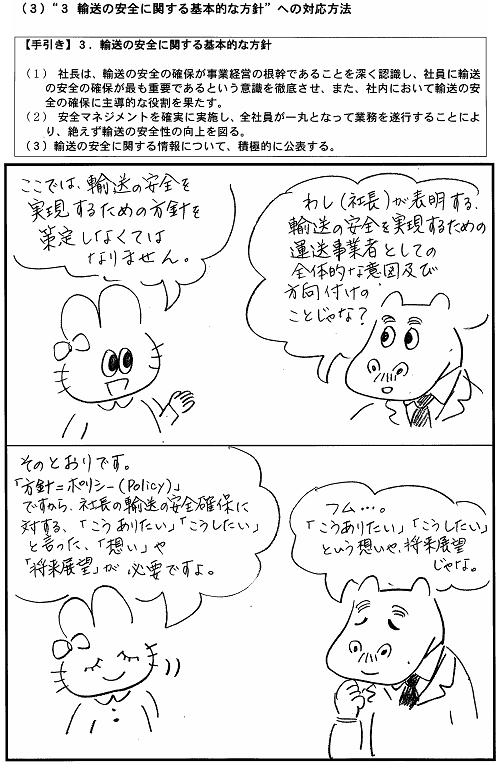 (3)“3 輸送の安全に関する基本的な方針”への対応方法
【手引き】3．輸送の安全に関する基本的な方針
(1) 社長は、輸送の安全の確保が事業経営の根幹であることを深く認識し、社員に輸送
の安全の確保が最も重要であるという意識を徹底させ、また、社内において輸送の安
全の確保に主導的な役割を果たす。
(2) 安全マネジメントを確実に実施し、全社員が一丸となって業務を遂行することによ
り、絶えず輸送の安全性の向上を図る。
(3) 輸送の安全に関する情報について、積極的に公表する。
ここでは、輸送の安全を
実現するための方針を
策定しなくては
なりません。
わし(社長)が表明する、
輸送の安全を実現するための
運送事業者としての
全体的な意図及び
方向付けの
ことじゃな？
そのとおりです。
「方針＝ポリシー(Policy)」
ですから、社長の輸送の安全確保に
対する、「こうありたい」「こうしたい」
と言った、「想い」や
「将来展望」が必要ですよ。
フム…。
「こうありたい」「こうしたい」
という想いや、将来展望
じゃな。